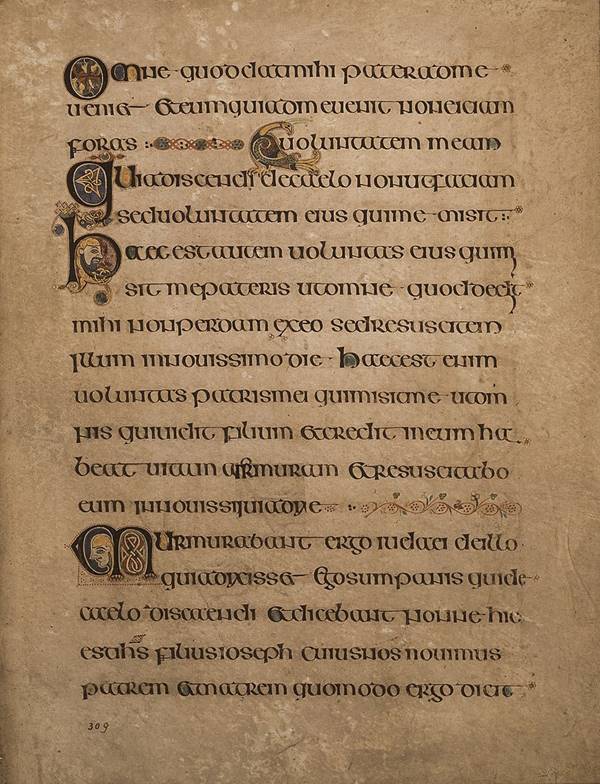 Omne quod dat mihi pater ad me
ueniet et eum qui ad me uenit non eiciam
foras uoluntatem meam
Quia discendi de caelo non ut faciam
sed uoluntatem eius qui me misit
Haec est autem uoluntas eius qui mi
sit me pateris ut omne quod dedit
mihi non perdam ex eo sed resuscitem
illum in nouissimo die Haec est enim
uoluntas patris mei qui misit me ut om
nis qui uidit filium et credit in eum ha
beat et resuscitabo
eum
Murmurabant ergo iudaei de illo
quia dixisset Ego sum panis qui de
caelo discendi et dicebant nonne hic
est ihs filius ioseph cuius nos nouimus
patrem et matrem quomodo ergo dicit
309